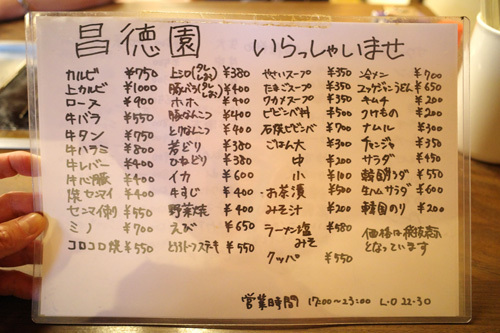 昌徳園 いらっしゃいませ
カルビ ¥750
上カルビ ¥1000
ロース ¥900
牛バラ ¥550
牛タン ¥750
牛ハラミ ¥800
牛レバー ¥400
牛心臓 ¥400
焼センマイ ¥400
センマイ刺 ¥550
ミノ ¥700
コロコロ焼 ¥550
上シロ(タレ しお) ¥380
豚バラ(タレ しお) ¥400
ホホ ¥400
豚なんこつ ¥400
とりなんこつ ¥400
若どり ¥380
ひねどり ¥380
イカ ¥600
牛すじ ¥400
野菜焼 ¥400
えび ¥650
とろろトンステキ ¥550
やさいスープ ¥350
たまごスープ ¥350
ワカメスープ ¥350
ビビンバ丼 ¥500
石焼ビビンバ ¥700
ごはん 大 ¥300
中 ¥200
小 ¥100
お茶漬 ¥500
みそ汁 ¥200
ラーメン 塩 みそ ¥580
クッパ ¥550
冷メン ¥700
ユッケジャンうどん ¥650
キムチ ¥200
つけもの ¥200
ナムル ¥300
チャンジャ ¥350
サラダ ¥450
韓国サラダ ¥550
生ハムサラダ ¥600
韓国のり ¥200
価格は税抜表示
となっています
営業時間 17:00~23:00 L・O 22-30